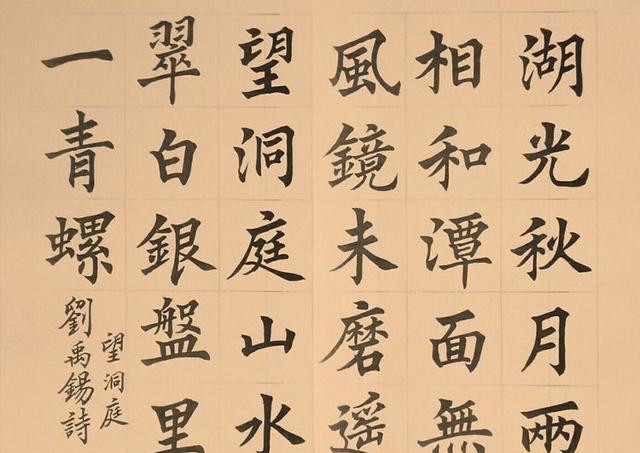 湖光秋月兩
相和潭面無
風鏡未磨遙
望洞庭山水
翠白銀盤里
一青螺
望洞庭
劉禹錫詩